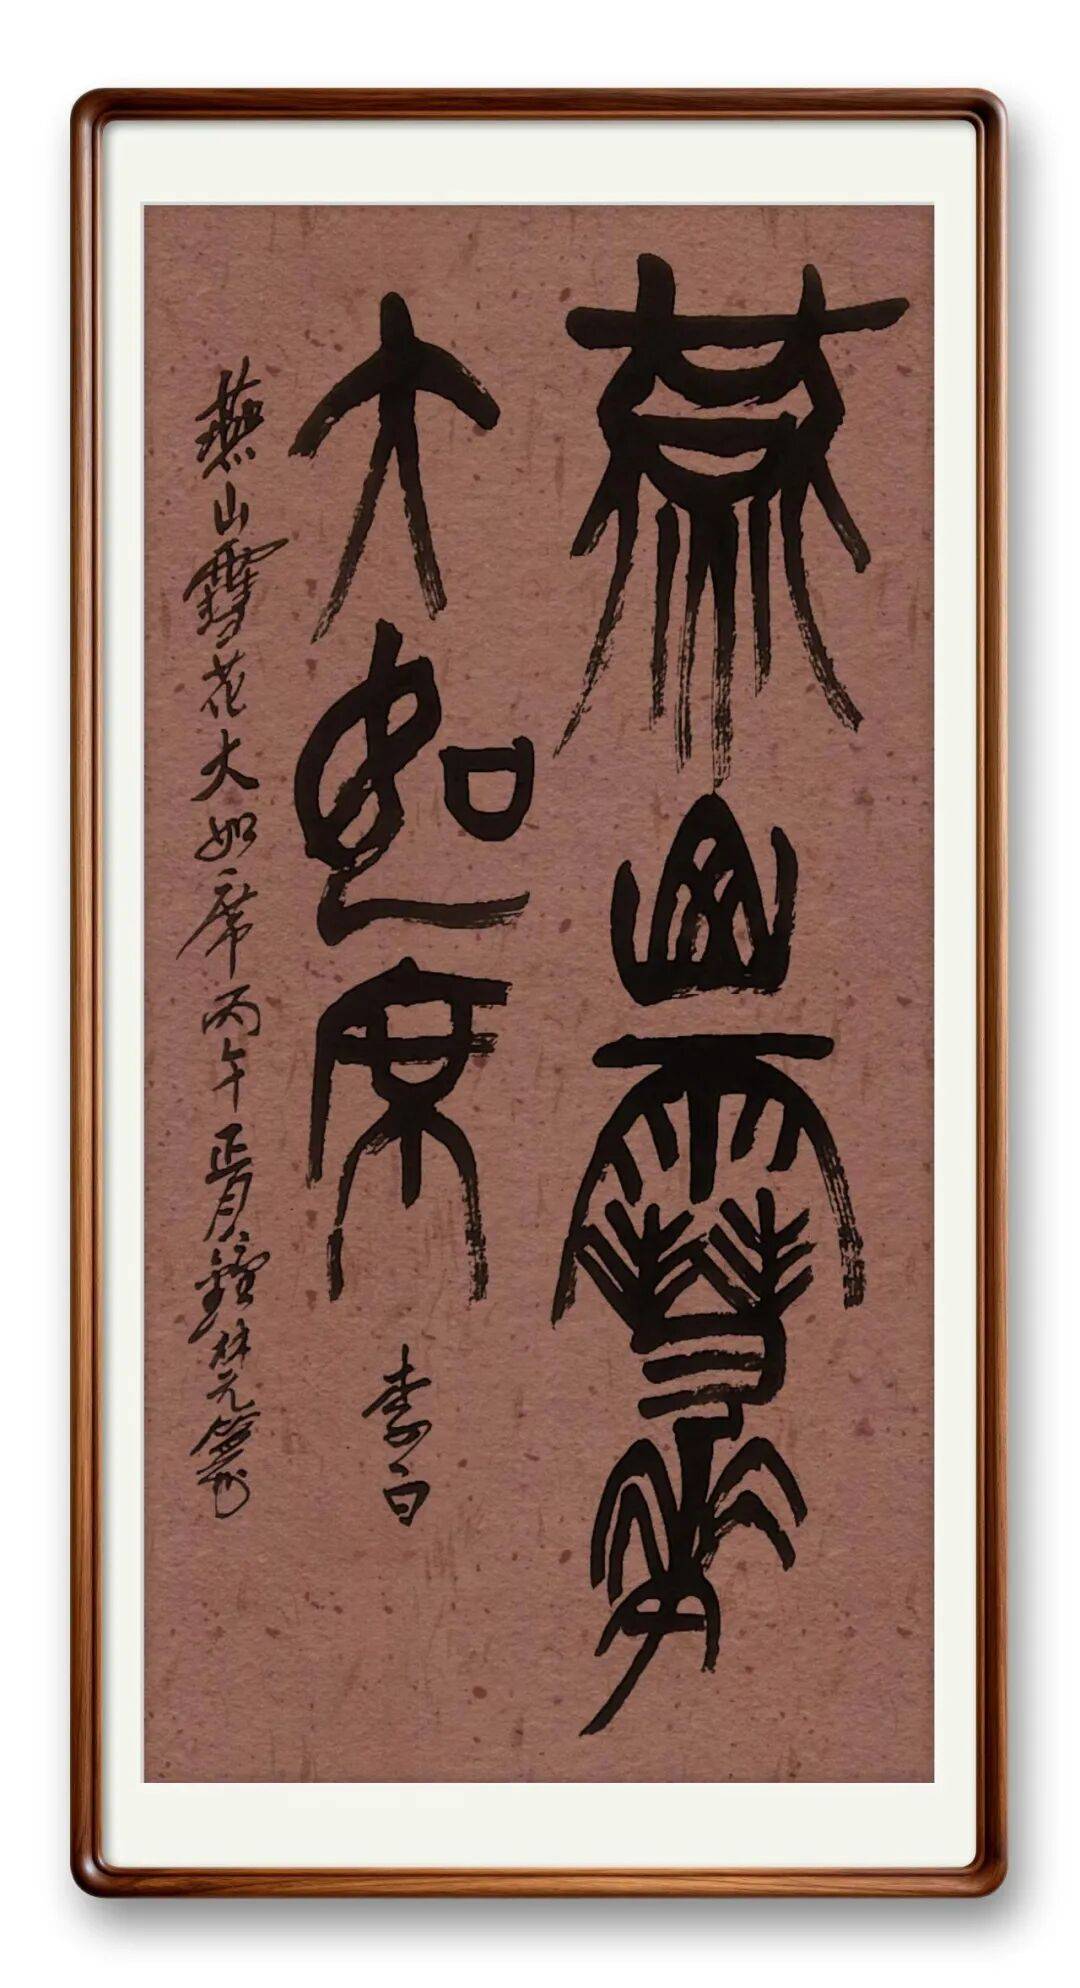 燕山雪花
大如席
李白
燕山雪花大如席丙午正月鐘林元篆